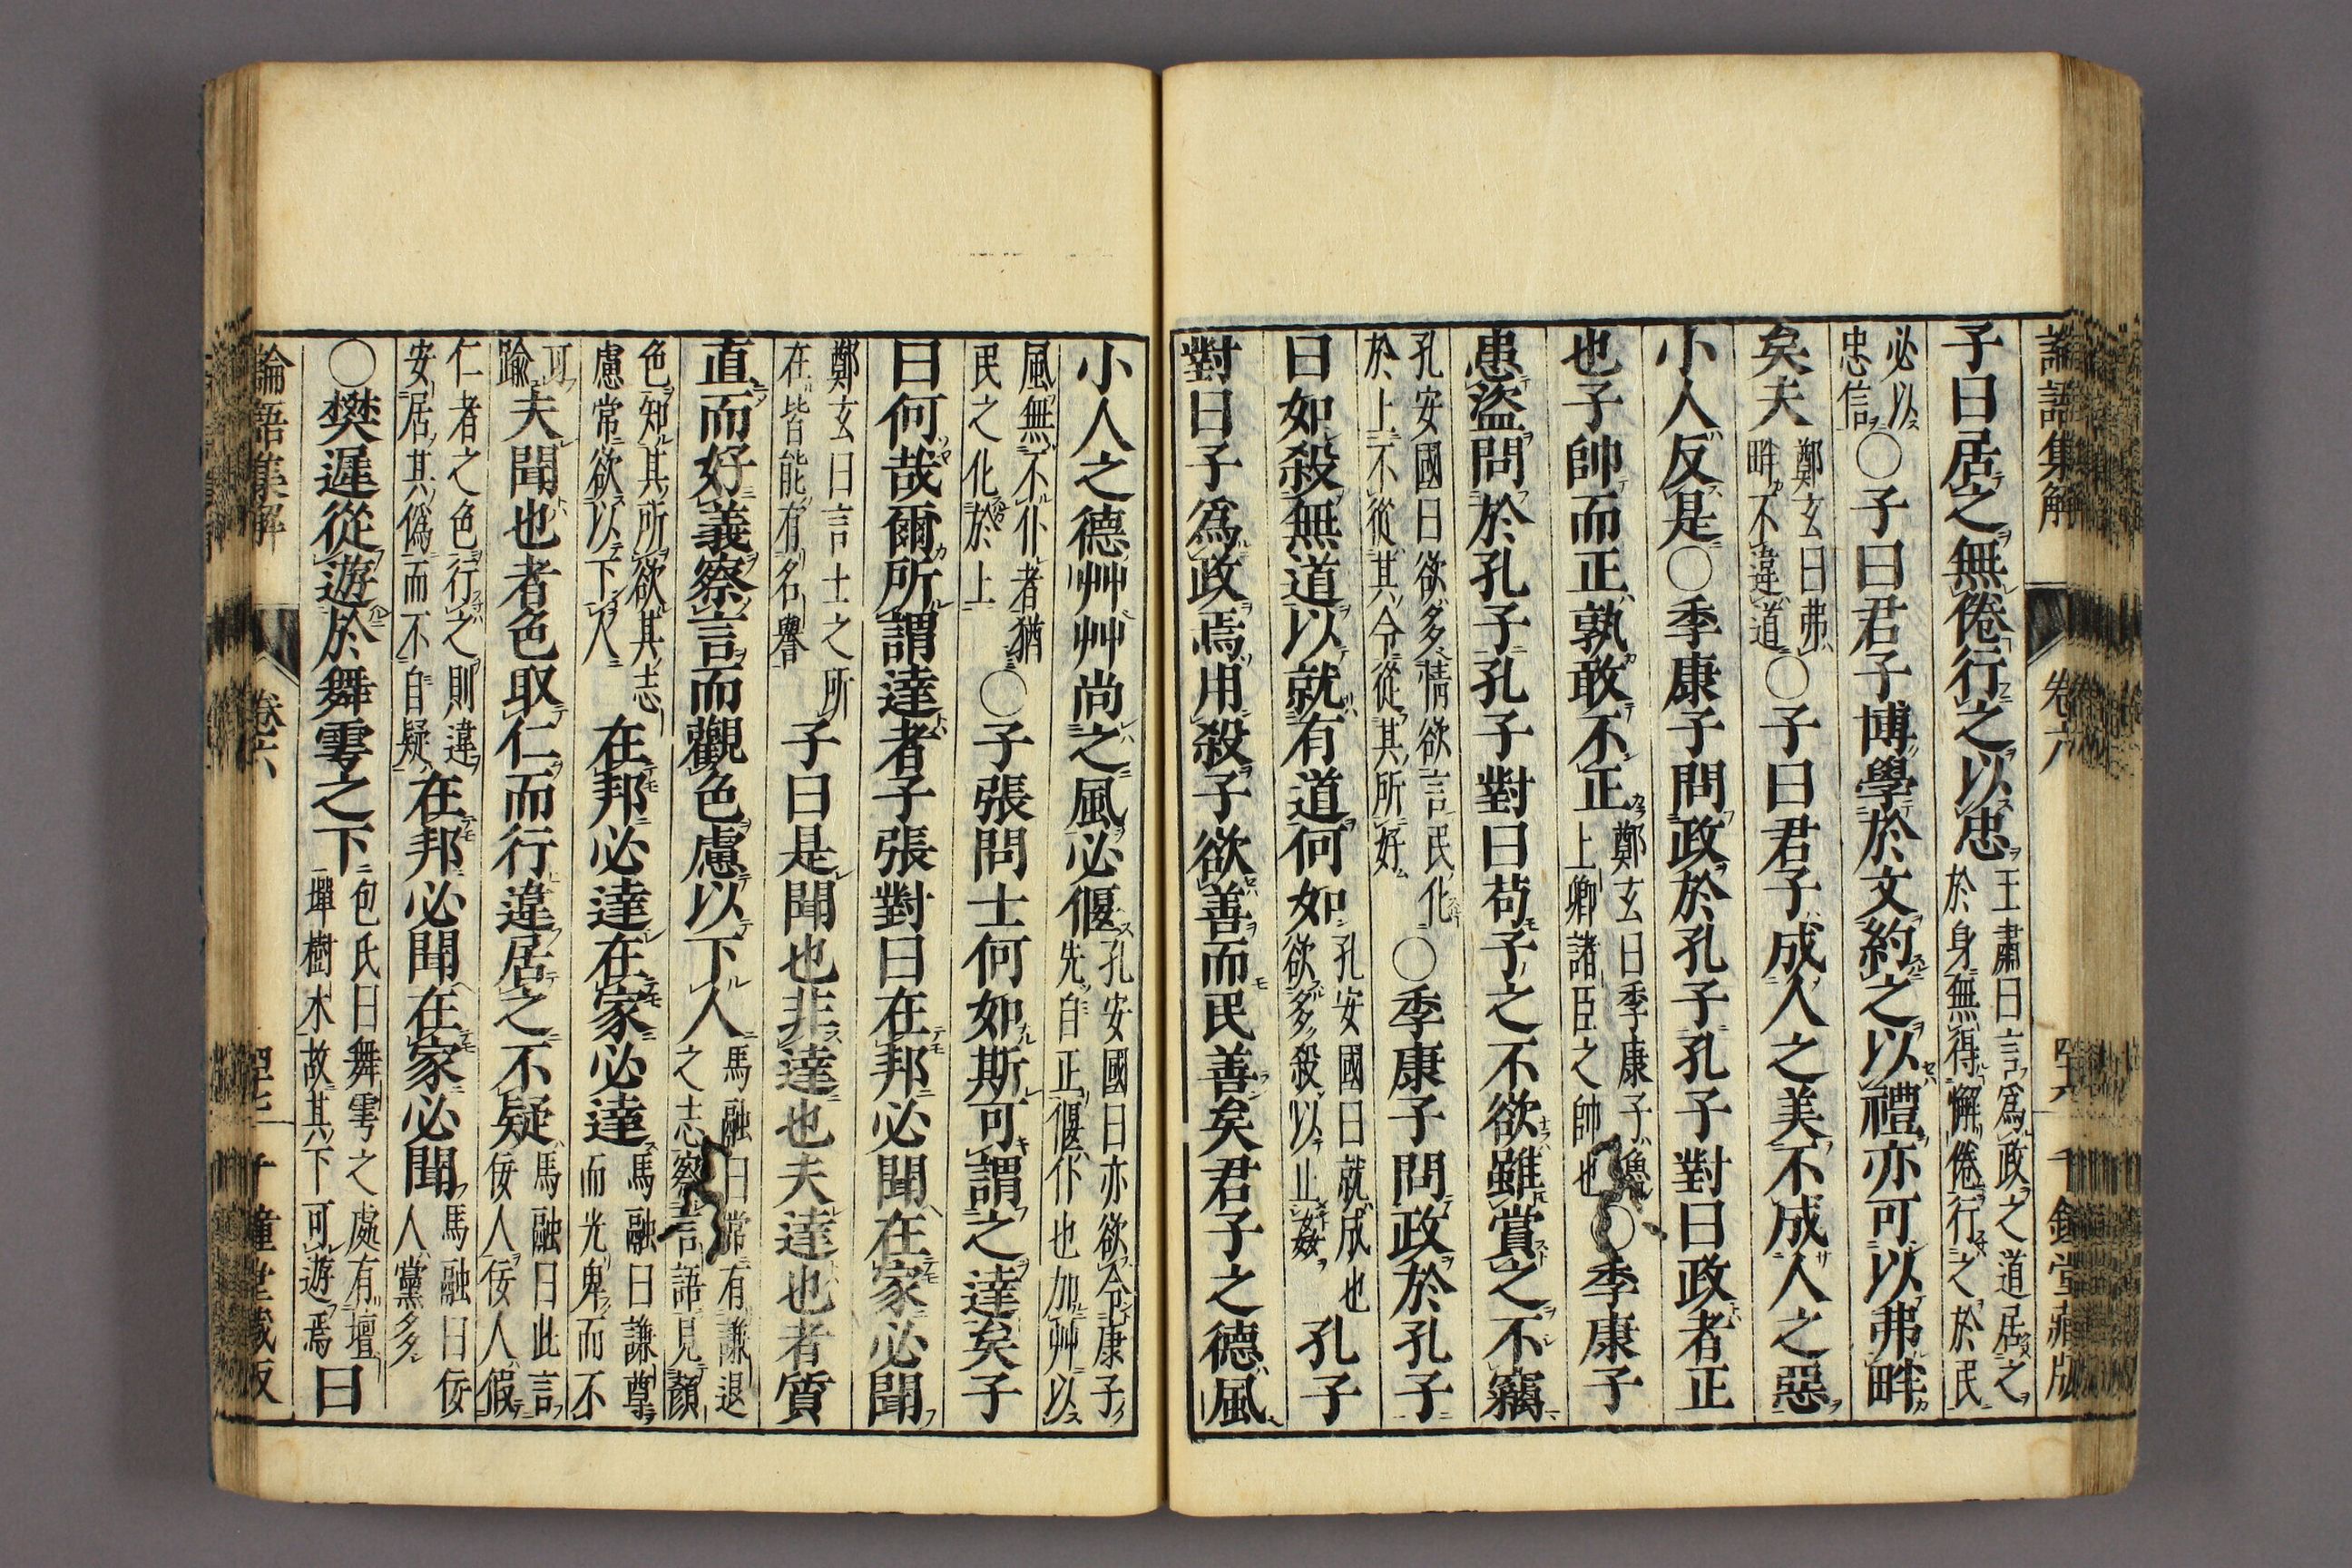 論語集解 卷六 千鍾堂藏版
子曰居之無倦行之以忠 王肅曰言爲政之道居之於身無得懈倦行之於民
必以忠信 ○子曰君子博學於文約之以禮亦可以弗畔
矣夫 鄭玄曰弗畔不違道 ○子曰君子成人之美不成人之惡
小人反是○季康子問政於孔子孔子對曰政者正
也子帥而正孰敢不正 鄭玄曰季康子魯上卿諸臣之帥也 ○季康子
患盜問於孔子孔子對曰苟子之不欲雖賞之不竊
孔安國曰欲多情欲言民化於上不從其令從其所好 ○季康子問政於孔子
曰如殺無道以就有道何如 孔安國曰就成也欲多殺以止姦 孔子
對曰子爲政焉用殺子欲善而民善矣君子之德風
小人之德艸艸尚之風必偃 孔安國曰亦欲令康子先自正偃仆也加艸以
風無不仆者猶民之化於上 ○子張問士何如斯可謂之達矣子
曰何哉爾所謂達者子張對曰在邦必聞在家必聞
鄭玄曰言士之所在皆能有名譽 子曰是聞也非達也夫達也者質
直而好義察言而觀色慮以下人 馬融曰常有謙退之志察言語見顏
色知其所欲其志慮常欲以下人 在邦必達在家必達 馬融曰謙尊而光卑而不
可踰 夫聞也者色取仁而行違居之不疑 馬融曰此言佞人佞人假
仁者之色行之則違安居其僞而不自疑 在邦必聞在家必聞 馬融曰佞人黨多
○樊遲從遊於舞雩之下 包氏曰舞雩之處有壇墠樹木故其下可遊焉 曰
論語集解 卷六 千鍾堂藏版